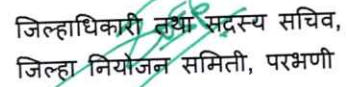 जिल्हाधिकारी तथा सदस्य सचिव,
जिल्हा नियोजन समिती, परभणी